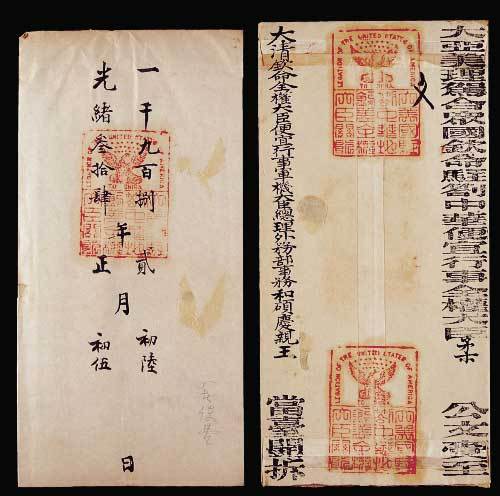 一千九百捌
貳
初陸
年
月
日
光緒叁拾肆
正
初伍
UNITED STATES
大亞美理駕合眾國欽命駐劄中華便宜行事全權大臣柔
公文
大清欽命全權大臣便宜行事軍機大臣總理外務部事務和碩慶親王
當臺開拆
LEGATION OF THE UNITED STATES OF AMERICA
LEGATION OF THE UNITED STATES OF AMERICA